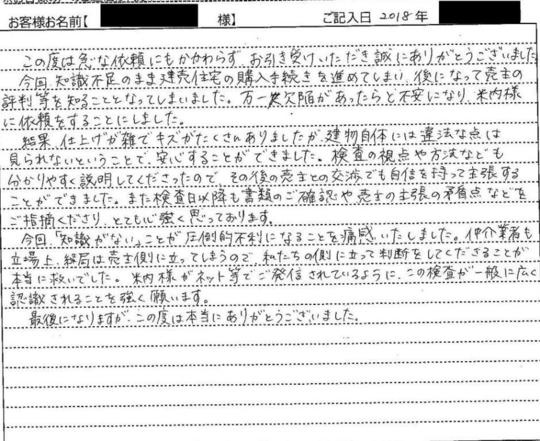 お客様お名前【 様】 ご記入日 2018年
この度は急な依頼にもかかわらず、お引き受けいただき誠にありがとうございました
今回、知識不足のまま建売住宅の購入手続きを進めてしまい、後になって売主の
評判等を知ることとなってしまいました。万一欠陥があったらと不安になり、米内様
に依頼をすることにしました。
結果、仕上げが雑でキズがたくさんありましたが、建物自体には違法な点は
見られないということで、安心することができました。検査の視点や方法なども
分かりやすく説明してくださったので、その後の売主との交渉でも自信を持って主張する
ことができました。また検査日以降も書類のご確認や売主の主張の矛盾点などを
ご指摘くださり、とても心強く思っております。
今回、「知識がない」ことが圧倒的不利になることを痛感いたしました。仲介業者も
立場上、結局は売主側に立ってしまうので、私たちの側に立って判断をしてくださることが
本当に救いでした。米内様がネット等でご発信されているように、この検査が一般に広く
認識されることを強く願います。
最後になりますが、この度は本当にありがとうございました。